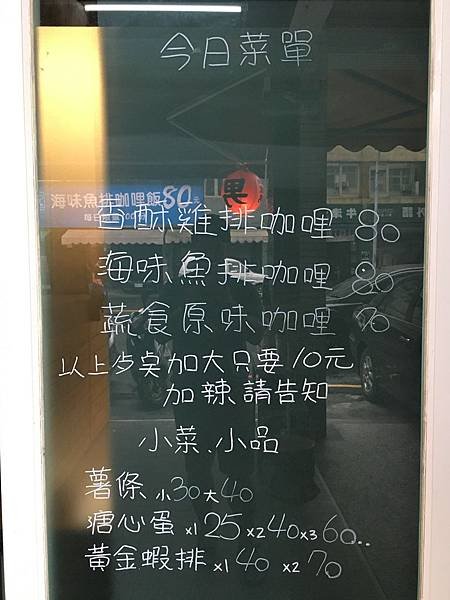 今日菜單
海味魚排咖哩飯80元
香酥雞排咖哩 80
海味魚排咖哩 80
蔬食原味咖哩 70
以上步桌加大只要10元
加辣請告知
小菜.小品
薯條 小30大40
溏心蛋 x1 25 x2 40 x3 60..
黃金蝦排 x1 40 x2 70